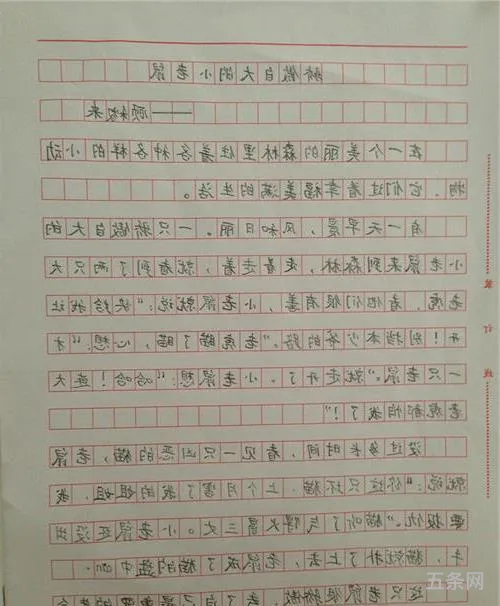 骄傲自大的小老鼠
——顾 来
在一个美丽的森林里住着各种各样的小动
物，它们过着幸福美满的生活。
有一天早晨，风和日丽。一只骄傲自大的
小老鼠来到森林，走着走着，就看到了两只大
老虎，看他们很有善，小老鼠就说：“快给我让
开！别挡本少爷的路。”老虎瞄了瞄，心想：“才
一只老鼠。”就走开了。小老鼠想：“哈哈！连大
老虎都怕我了！”
没过多长时间，看见一只凶恶的猫，老鼠
就说：“你这只坏猫，上个月害了我的姐姐，我
要报仇。”猫听了气得火冒三丈。小老鼠还没出
手，猫就扑了上去，老鼠成了猫的盘中
这只老鼠很骄傲，
装订线
五条网